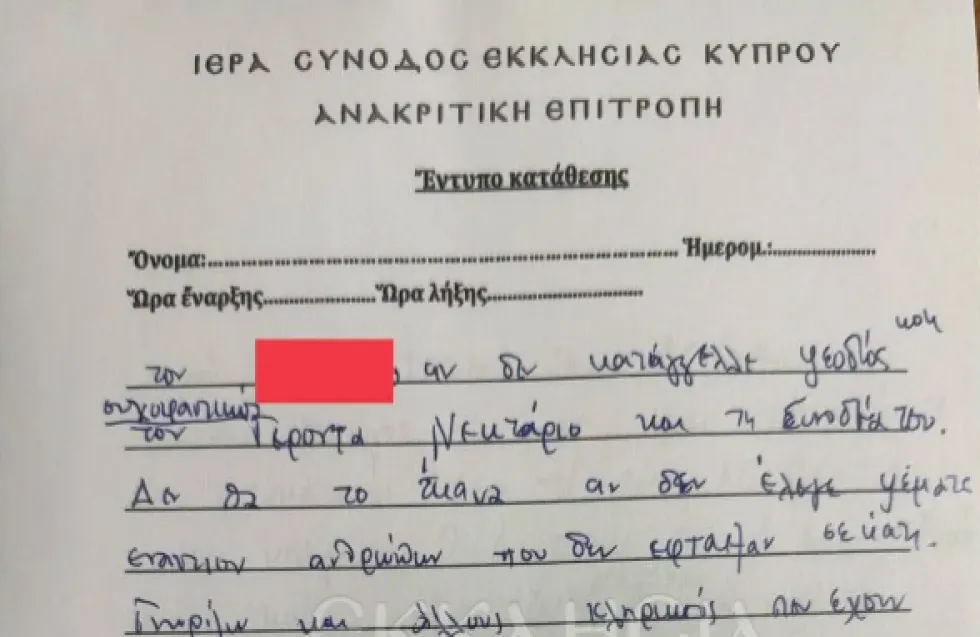 ΙΕΡΑ ΣΥΝΟΔΟΣ ΕΚΚΛΗΣΙΑΣ ΚΥΠΡΟΥ
ΑΝΑΚΡΙΤΙΚΗ ΕΠΙΤΡΟΠΗ
Ἔντυπο κατάθεσης
Ὄνομα:........................................................ Ἡμερομ.:....................
Ὥρα ἔναρξης......................Ὥρα λήξης..............................
και
τον , αν δεν κατάγγελλε ψευδώς
τον Γέροντα Νεκτάριο και τη Συνοδία του.
Δεν θα το έκανα αν δεν έλεγε ψέματα
εναντίον ανθρώπων που δεν έφταιξαν σε κάτι.
Γνωρίζω και άλλους κληρικούς που έχουν
ΕΚΚΛΗΣΙΑ